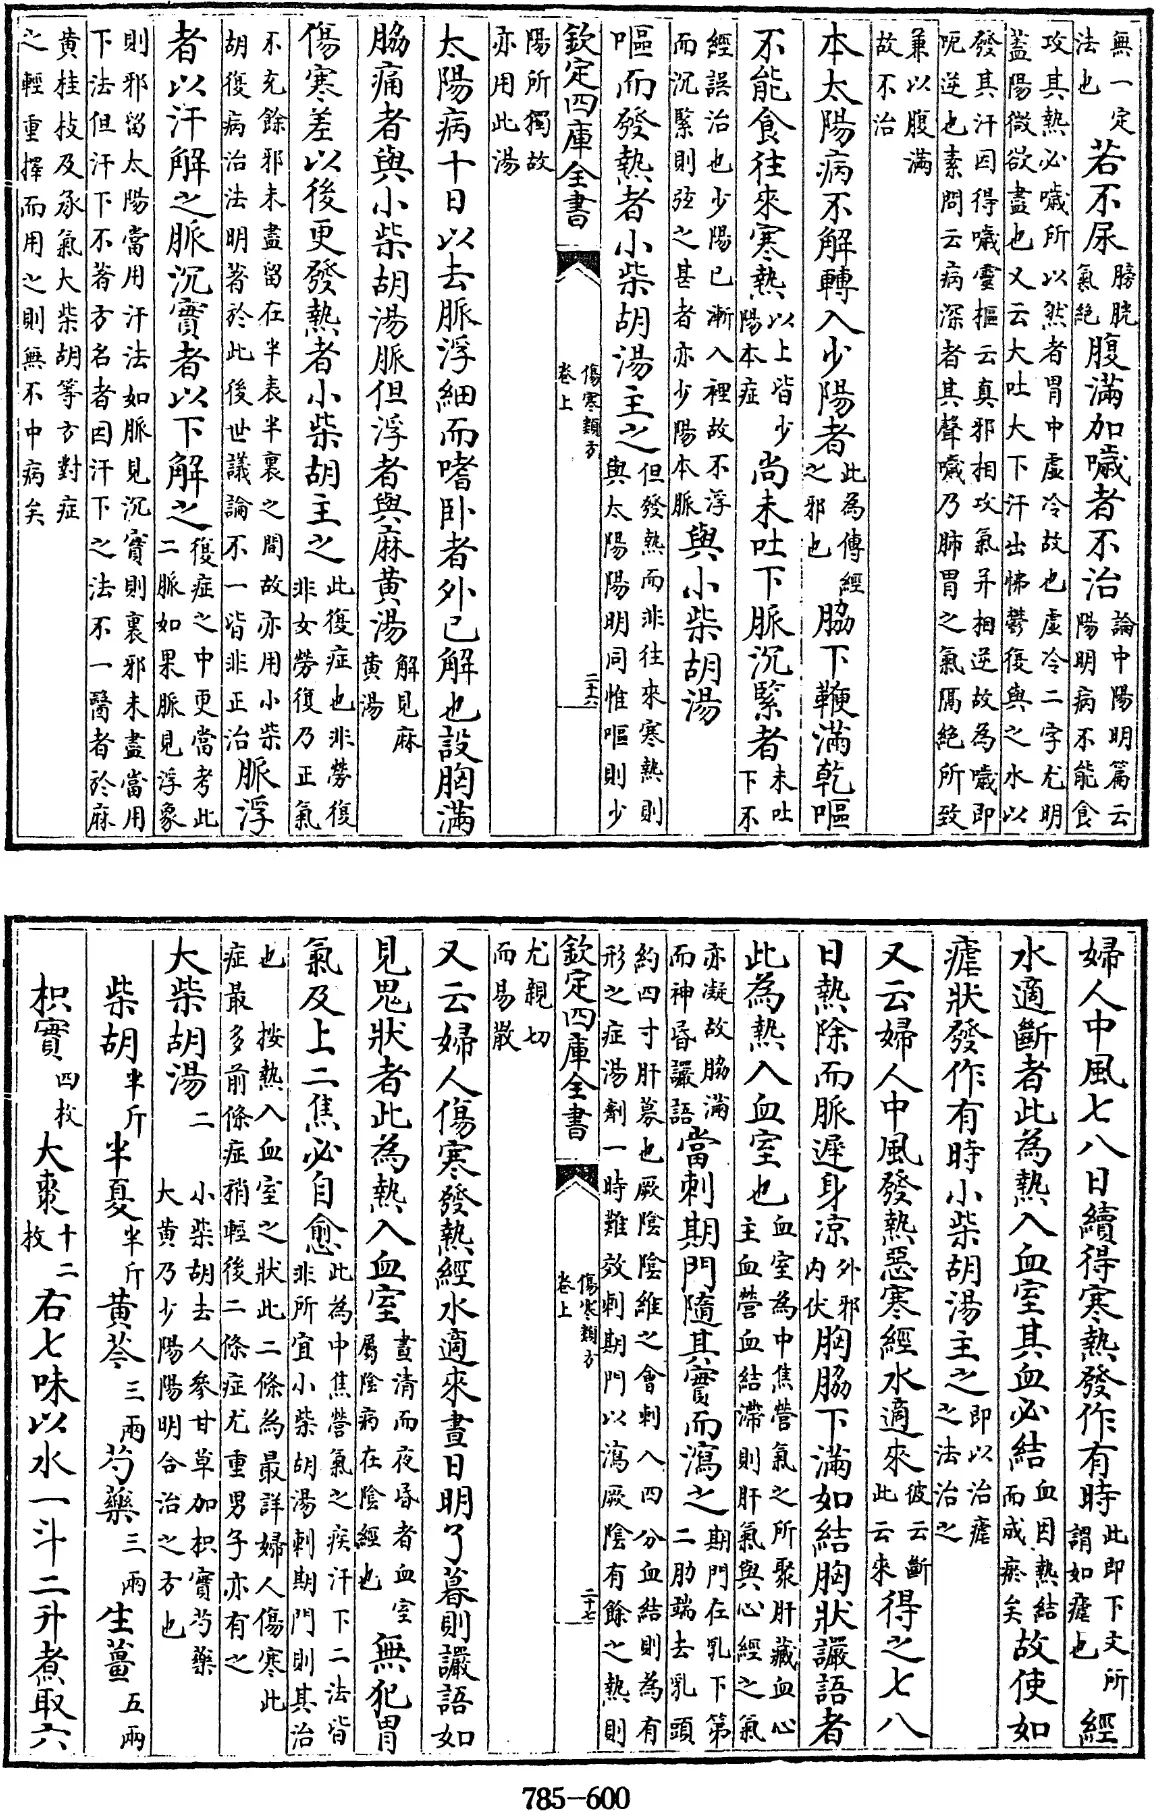 無一定法也若不尿膀胱氣絶腹滿加噦者不治論中陽明篇云陽明病不能食
攻其熱必噦所以然者胃中虚冷故也虚冷二字尤明
蓋陽微欲盡也又云大吐大下汗出怫鬱復與之水以
發其汗因得噦靈樞云真邪相攻氣并相逆故為噦即
呃逆也素問云病深者其聲噦乃肺胃之氣隔絶所致
兼以腹滿
故不治
本太陽病不解轉入少陽者此為傳經之邪也脇下鞕滿乾嘔
不能食往來寒熱以上皆少陽本症尚未吐下脈沉緊者未吐下不
經誤治也少陽已漸入裡故不浮而沉緊則弦之甚者亦少陽本脈與小柴胡湯
嘔而發熱者小柴胡湯主之但發熱而非往來寒熱則與太陽陽明同惟嘔則少
欽定四庫全書 傷寒類方 卷上 二十六
陽所獨故
亦用此湯
太陽病十日以去脈浮細而嗜卧者外已解也設胸滿
脇痛者與小柴胡湯脈但浮者與麻黄湯解見麻黄湯
傷寒差以後更發熱者小柴胡主之此復症也非勞復非女勞復乃正氣
不充餘邪未盡留在半表半裏之間故亦用小柴胡復病治法明著於此後世議論不一皆非正治脈浮
者以汗解之脈沉實者以下解之復症之中更當考此二脈如果脈見浮象
則邪留太陽當用汗法如脈見沉實則裏邪未盡當用
下法但汗下不著方名者因汗下之法不一醫者於麻
黄桂枝及承氣大柴胡等方對症
之輕重擇而用之則無不中病矣
婦人中風七八日續得寒熱發作有時此即下文所謂如瘧也經
水適斷者此為熱入血室其血必結血因熱結而成瘀矣故使如
瘧狀發作有時小柴胡湯主之即以治瘧之法治之
又云婦人中風發熱惡寒經水適來彼云斷此云來得之七八
日熱除而脈遲身凉外邪内伏胸脇下滿如結胸狀譫語者
此為熱入血室也血室為中焦營氣之所聚肝藏血心主血營血結滯則肝氣與心經之氣
亦凝故脇滿而神昏譫語當刺期門隨其實而瀉之期門在乳下第二肋端去乳頭
約四寸肝募也厥陰陰維之會刺入四分血結則為有
形之症湯劑一時難效刺期門以瀉厥陰有餘之熱則
欽定四庫全書 傷寒類方 卷上 二十七
尤親切
而易散
又云婦人傷寒發熱經水適來晝日明了暮則譫語如
見鬼狀者此為熱入血室晝清而夜昏者血室屬陰病在陰經也無犯胃
氣及上二焦必自愈此為中焦營氣之疾汗下二法皆非所宜小柴胡湯刺期門則其治
也 按熱入血室之狀此二條為最詳婦人傷寒此
症最多前條症稍輕後二條症尤重男子亦有之
大柴胡湯二小柴胡去人參甘草加枳實芍藥大黄乃少陽陽明合治之方也
柴胡半斤 半夏半斤 黄芩三兩 芍藥三兩 生薑五兩
枳實四枚 大棗十二枚 右七味以水一斗二升煮取六
785-600